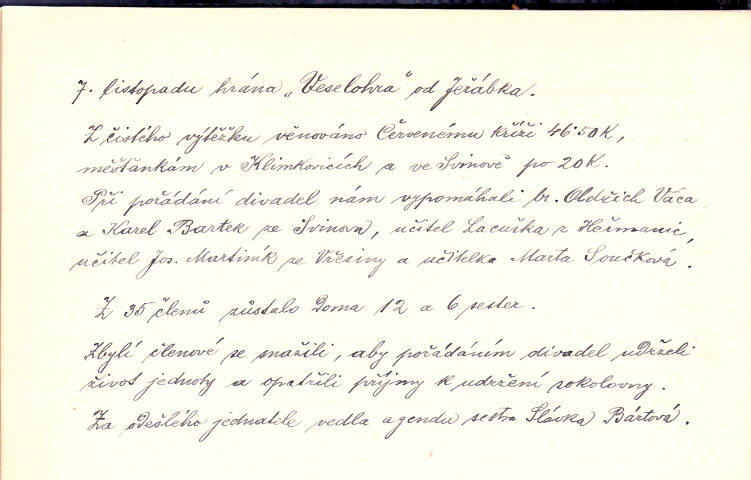 7. listopadu hrána „Veselohra" od Jeřábka.
Z čistého výtěžku věnováno Červenému kříži 46·50K,
měšťankám v Klimkovicích a ve Svinově po 20K.
Při pořádání divadel nám vypomáhali br. Oldřich Váca
a Karel Bartek ze Svinova, učitel Lacuška z Heřmanic,
učitel Jos. Martiník ze Vřesiny a učitelka Marta Součková.
Z 35 členů zůstalo doma 12 a 6 sester.
Zbylí členové se snažili, aby pořádáním divadel udrželi
život jednoty a opatřili příjmy k udržení sokolovny.
Za odešlého jednatele vedla agendu sestra Slávka Bártová.